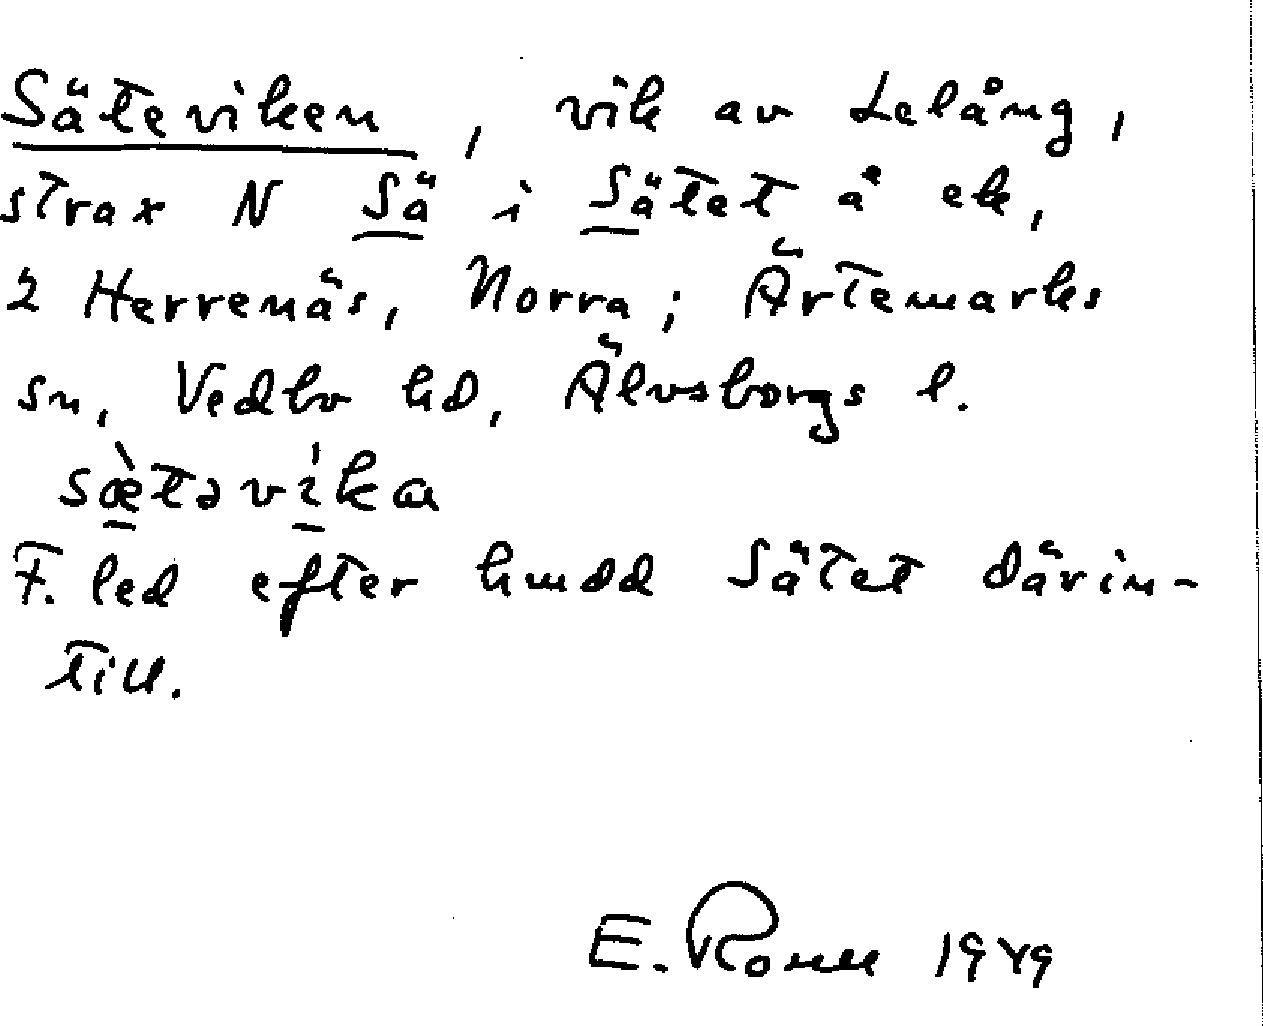 Säteviken, vik av Lelång,
strax N Sä i Sätet å ek,
2 Herrenäs, Norra; Ärtemarks
sn, Vedbo hd, Älvsborgs l.
sæ̀təvíka
F. led efter hmdd Sätet därin-
till.
E. 1949